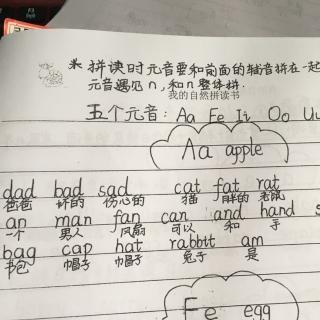 * 拼读时元音要和前面的辅音拼在一起
元音遇见 n, 和 n 整体拼.
我的自然拼读书
五个元音: Aa Ee Ii Oo Uu
Aa apple
dad bad sad cat fat rat
爸爸 坏的 伤心的 猫 胖的 老鼠
an man fan can and hand
一个 男人 风扇 可以 和 手
bag cap hat rabbit am
书包 帽子 帽子 兔子 是
Ee egg